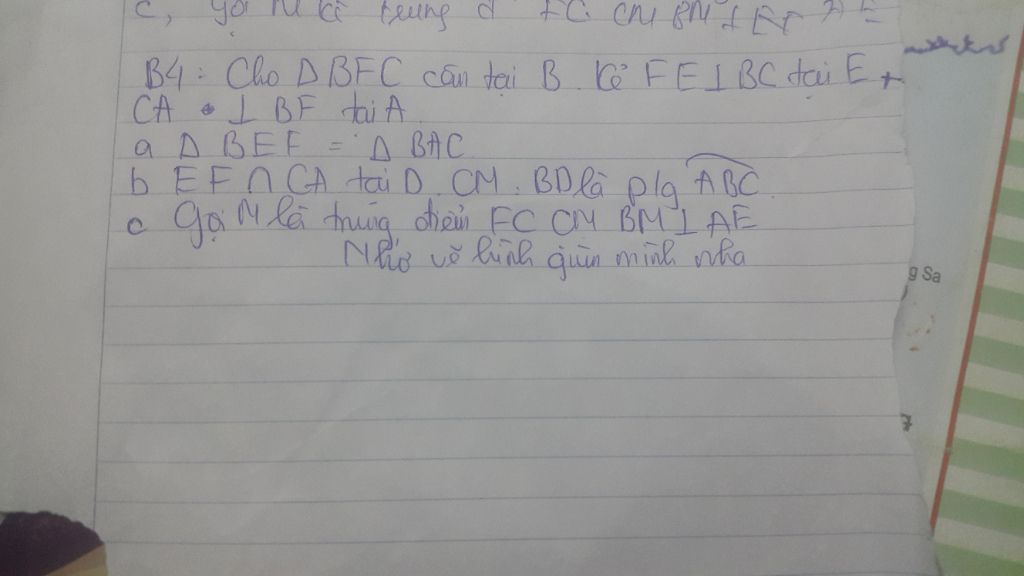 c, gọi M là trung đ FC. CM BM ⊥ AE
B4: Cho Δ BFC cân tại B. Kẻ FE⊥BC tại E,
CA ⊥ BF tại A
a Δ BEF = Δ BAC
b EF ∩ CA tại D. CM. BD là p/g ABC
c Gọi M là trung điểm FC CM BM⊥AE
Nhớ vẽ hình giùm mình nha
g Sa
7